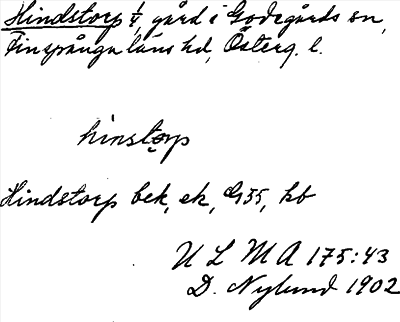 Hindstorp 1/4, gård i Godegårds sn,
Finspånga läns hd, Österg. l.
hinstorp
Hindstorp bek, ek, G35, kb
U L M A 175:43
D. Nylund 1902